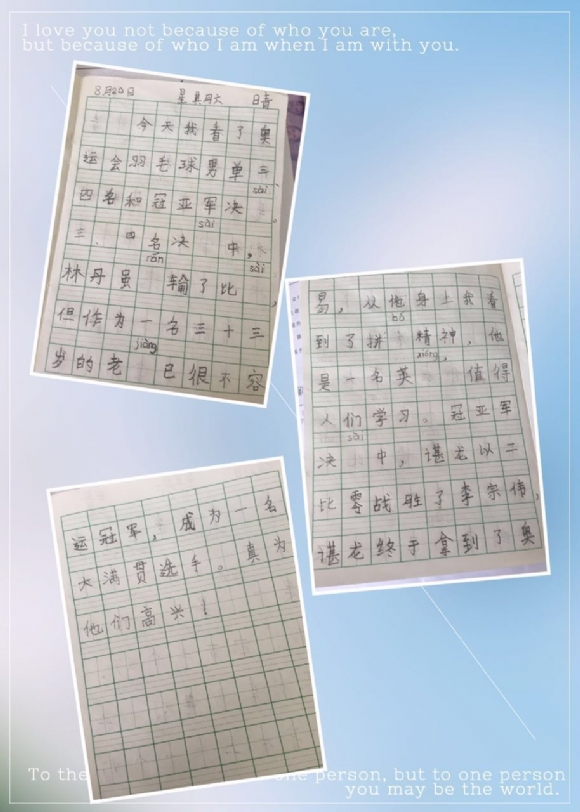 I love you not because of who you are,
but because of who I am when I am with you.
8月20日 星其月六 日青
今天我看了奥
运会羽毛球男单三
四名和冠亚军决sài
三、四名决sài中,
林丹虽rán输了比sài,
但作为一名三十三
岁的老jiàng已很不容
易,从他身上我看
到了拼bó精神,他
是一名英xióng,值得
人们学习。冠亚军
决sài中,谌龙以二
比零战胜了李宗伟,
谌龙终于拿到了奥
运冠军,成为一名
大满贯选手。真为
他们高兴!
To the one person, but to one person
you may be the world.